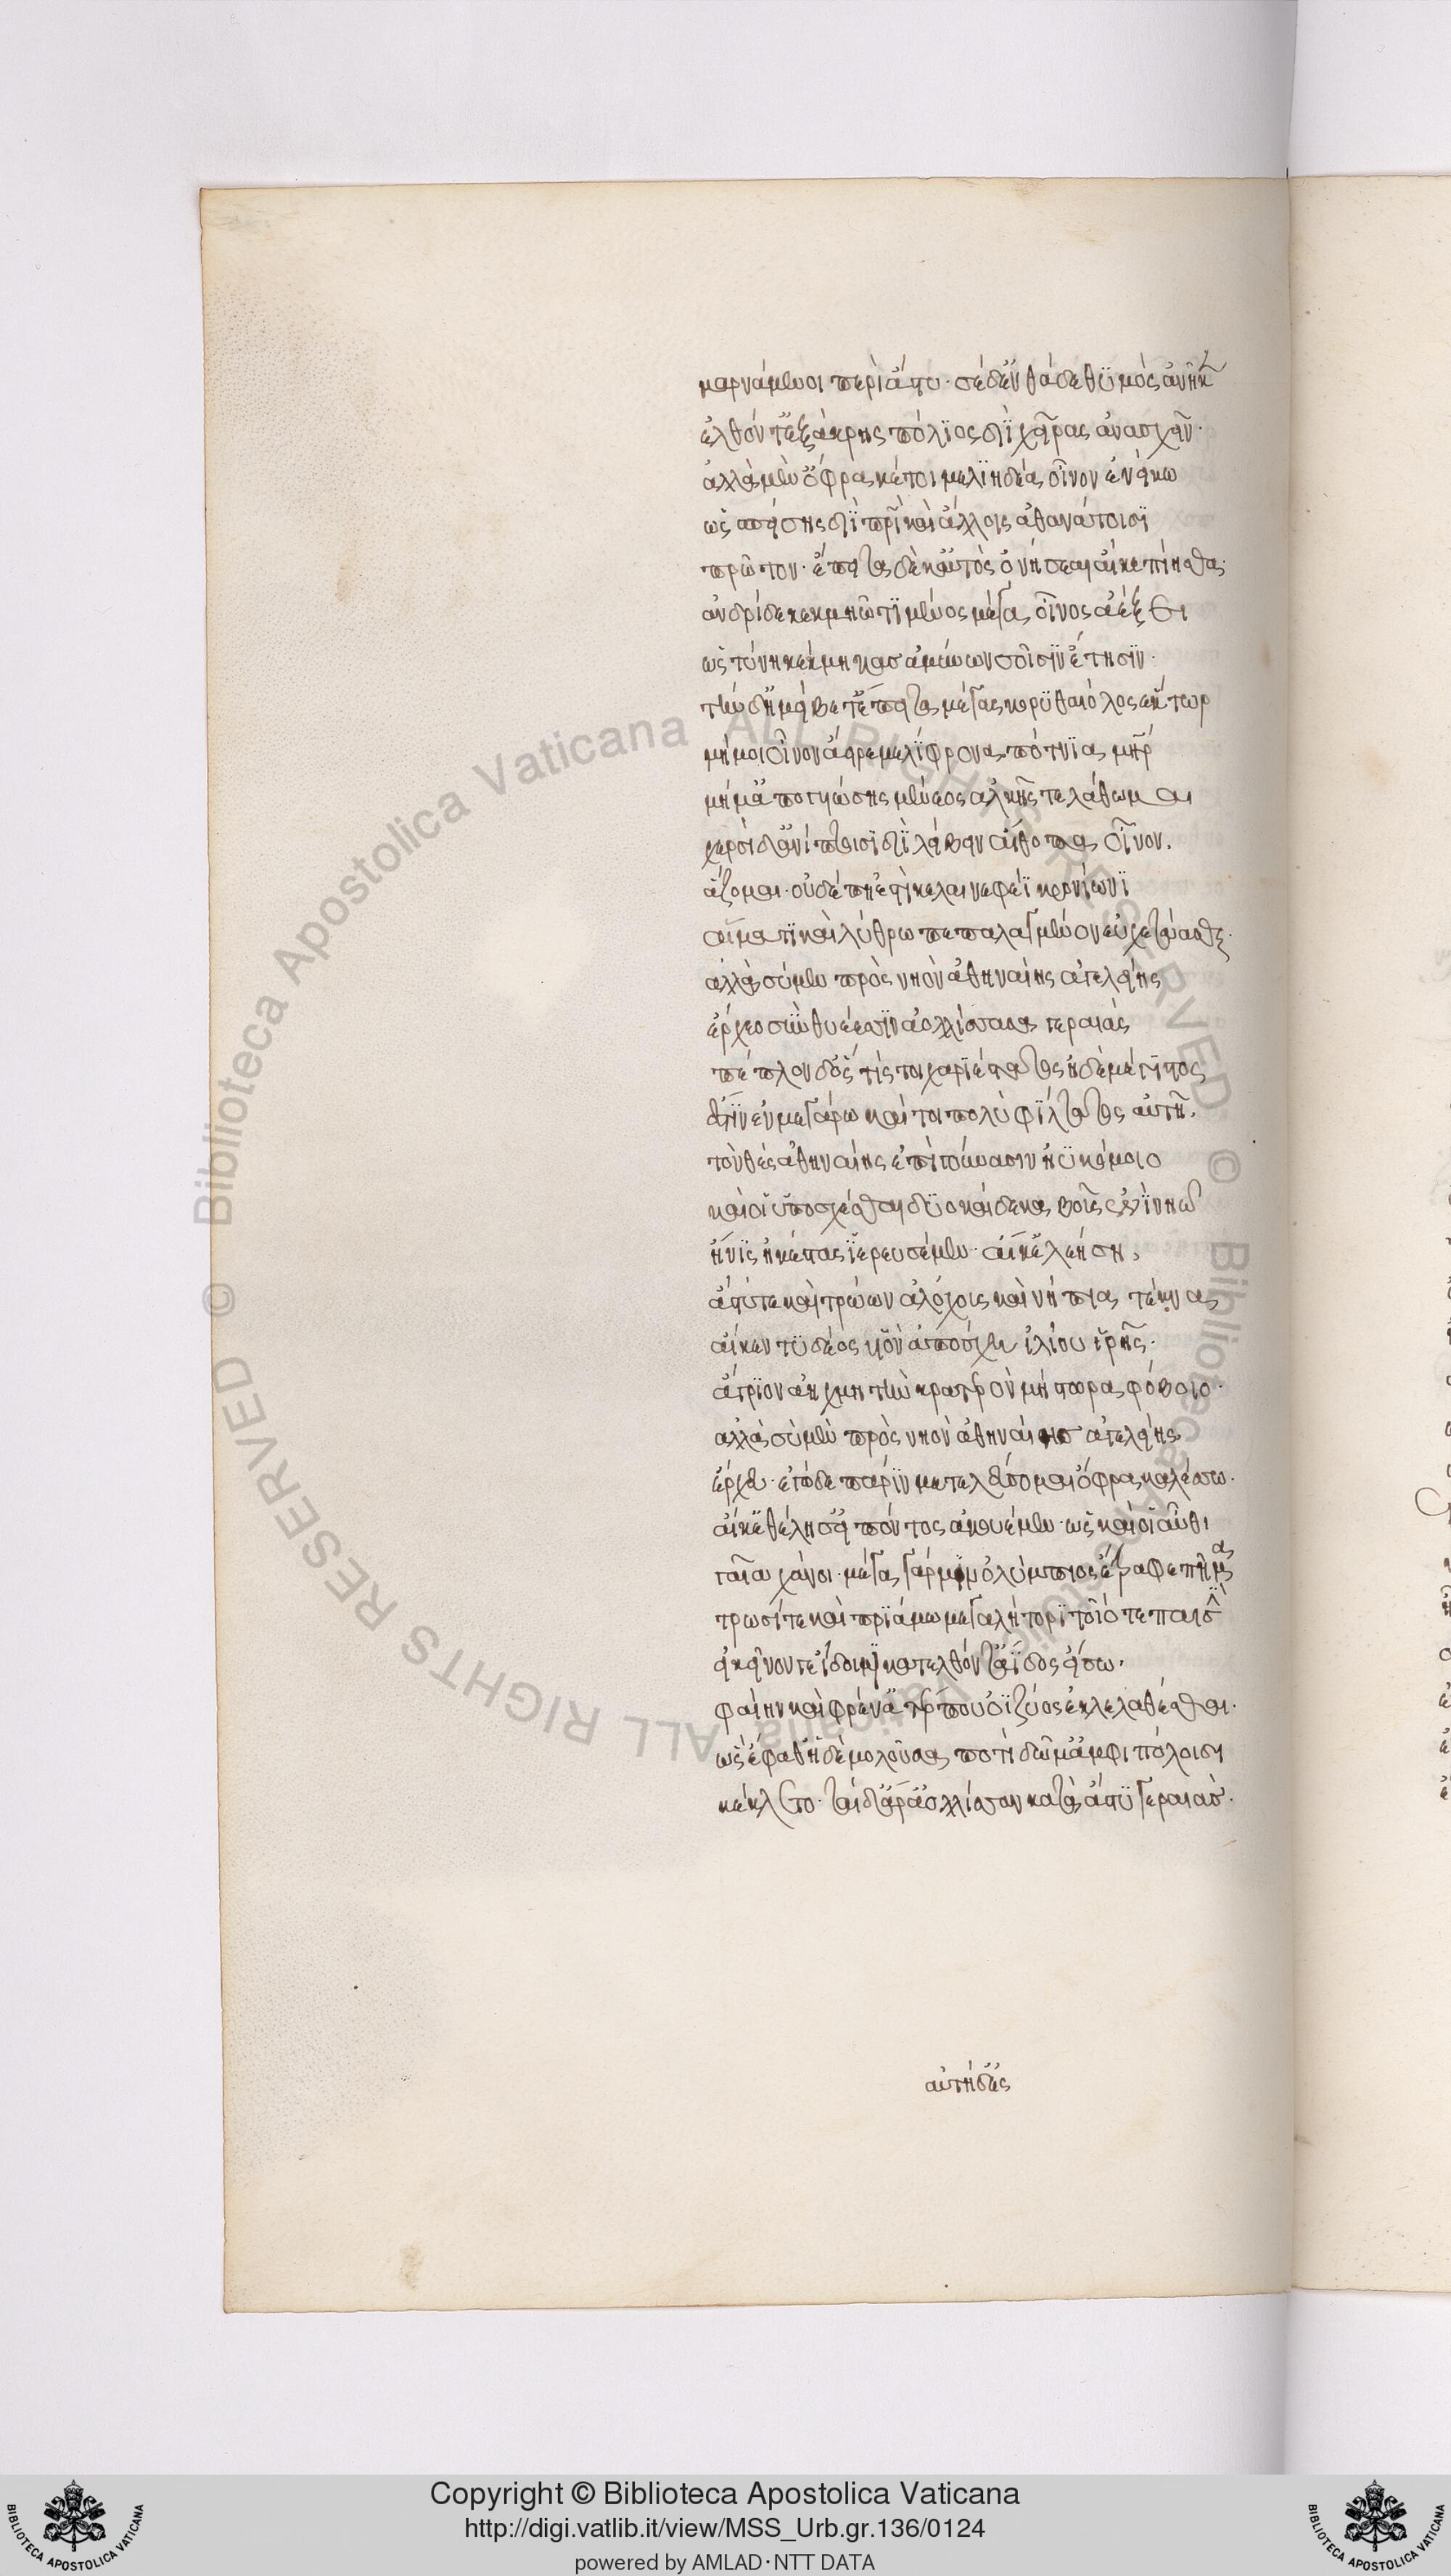 μαρνάμενοι περὶ ἄστυ· σὲ δ' ἐνθάδε θϋμὸς ἀνῆκεν
ἐλθόντ' ἐξ ἄκρης πόλϊος διῒ χεῖρας ἀνασχεῖν·
ἀλλὰ μὲν ὄφρα κέ τοι μελϊηδέα οἶνον ἐνείκω
ὡς σπείσης διῒ πατρὶ καὶ ἄλλοις ἀθανάτοισϊ
πρῶτον· ἔπειτα δὲ καὐτὸς ὀνήσεαι αἴ κε πίησθα·
ἀνδρὶ δὲ κεκμηῶτϊ μένος μέγα οἶνος ἀέξει
ὡς τύνη κέκμηκας ἀμύνων σοῖσϊν ἔτησϊν·
τὴν δ' ἠμείβετ' ἔπειτα μέγας κορϋθαιόλος ἕκτωρ
μή μοι οἶνον ἄειρε μελίφρονα πότνϊα μῆτερ
μή μ' ἀπογυιώσης μένεος ἀλκῆς τε λάθωμαι
χερσὶ δ' ἀνίπτοισϊ διῒ λείβειν αἴθοπα οἶνον.
ἅζομαι· οὐδέ πη ἐστὶ κελαινεφέϊ κρονίωνϊ
αἵματϊ καὶ λύθρω πεπαλαγμένον εὐχετάασθαι·
ἀλλὰ σὺ μὲν πρὸς νηὸν ἀθηναίης ἀγελείης
ἔρχεο σὺν θυέεσσϊν ἀολλίσσασα γεραιάς
πέπλον δ' ὅς τίς τοι χαρϊέστατος ἠδὲ μέγϊστος
ἔστϊν ἐν μεγάρω καί τοι πολὺ φϊλτατος αὐτῆ.
τὸν θὲς ἀθηναίης ἐπὶ γούνασιν ἠϋκόμοιο
καί οἱ ὑποσχέσθαι δϋοκαίδεκα βοῦς ἐνῒ νηῶ
ἤνϊς ἠκέστας ἱερευσέμεν· αἴ κ' ἐλεήση,
ἄστυ τε καὶ τρώων ἀλόχους καὶ νήπια τέκνα
αἴ κεν τϋδέος υἱὸν ἀπόσχη ἰλίου ἱρῆς·
ἄγρϊον αἰχμητὴν κρατερὸν μήστωρα φόβοιο·
ἀλλὰ σὺ μὲν πρὸς νηὸν ἀθηναίης ἀγελείης
ἔρχευ· ἐγὼ δὲ πάρϊν μετελεύσομαι ὄφρα καλέσσω·
αἴ κ' ἐθέλησ' εἰπόντος ἀκουέμεν· ὥς κέ οἱ αὖθι
γαῖα χάνοι· μέγα γάρ μϊν ὀλύμπιος ἔτραφε πῆμα
τρωσί τε καὶ πρϊάμω μεγαλήτορϊ τοῖό τε παισΐν
εἰ κεῖνόν γε ἴδοιμϊ κατελθόντ' ἄϊδος εἴσω.
φαίην καὶ φρέν' ἀτέρπου ὀϊζύος ἐκλελαθέσθαι·
ὡς ἔφαθ' ἡ δὲ μολοῦσα ποτὶ δῶμ' ἀμφιπόλοισιν
κέκλετο· ταὶ δ' ἄρ' ἀόλλισσαν κατὰ ἄστϋ γεραιάς·
αὐτὴ δ' ἐς